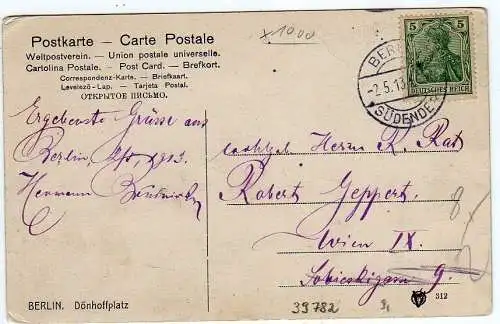 Postkarte — Carte Postale
Weltpostverein. — Union postale universelle.
Cartolina Postale. — Post Card. — Brefkort.
Correspondenz-Karte. — Briefkaart.
Levelező-Lap. — Tarjeta Postal.
ОТКРЫТОЕ ПИСЬМО.
x 1000
5 5
DEUTSCHES REICH
BER
-2.5.13
* SÜDENDE
Ergebenste Grüsse aus
Berlin, 1913.
Hermann
Herrn R. Rat
Robert Geppert.
Wien IX.
9.
8
BERLIN. Dönhoffplatz
39782
312